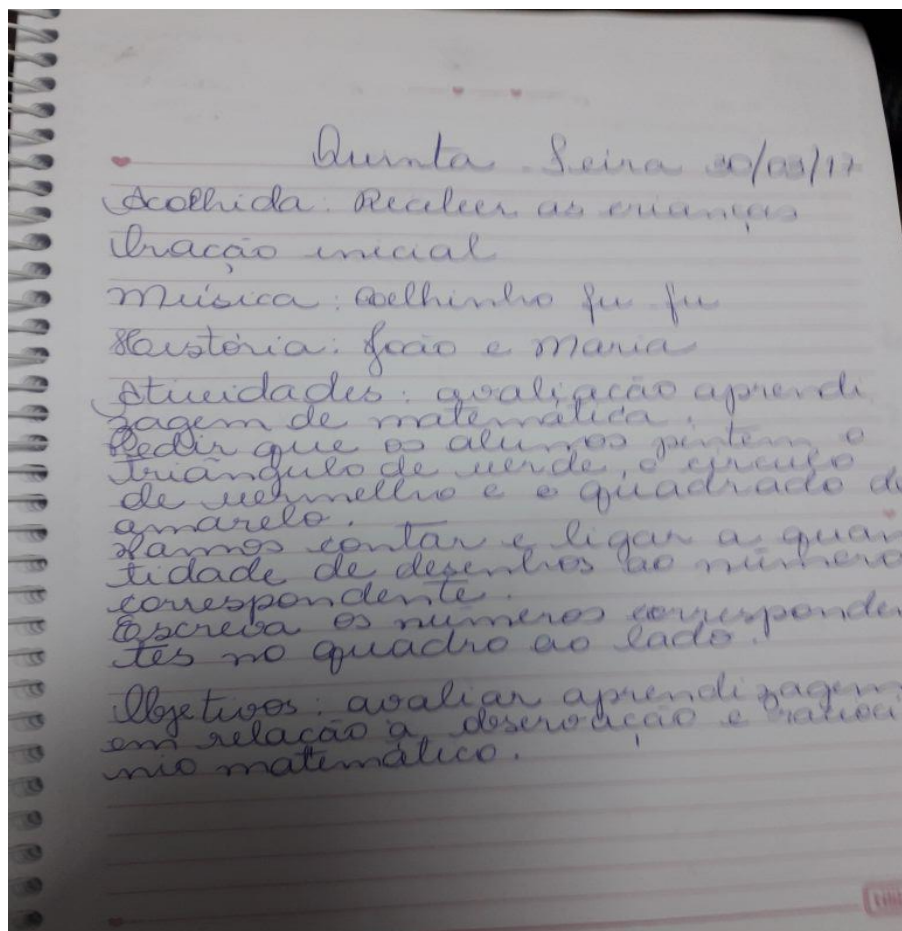 Quinta Feira 30/03/17
Acolhida: Receber as crianças
Oração inicial
Música: coelhinho fu fu
História: João e Maria
Atividades: avaliação aprendi
zagem de matemática.
Pedir que os alunos pintem o
triângulo de verde, o círculo
de vermelho e o quadrado de
amarelo.
Vamos contar e ligar a quan
tidade de desenhos ao número
correspondente.
Escreva os números corresponden
tes no quadro ao lado.
Objetivos: avaliar aprendizagem
em relação à observação e racioci
nio matemático.